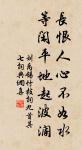 長恨人心不如水
等閑平地起波瀾
劉禹錫竹枝詞九首其
七詞典網喜